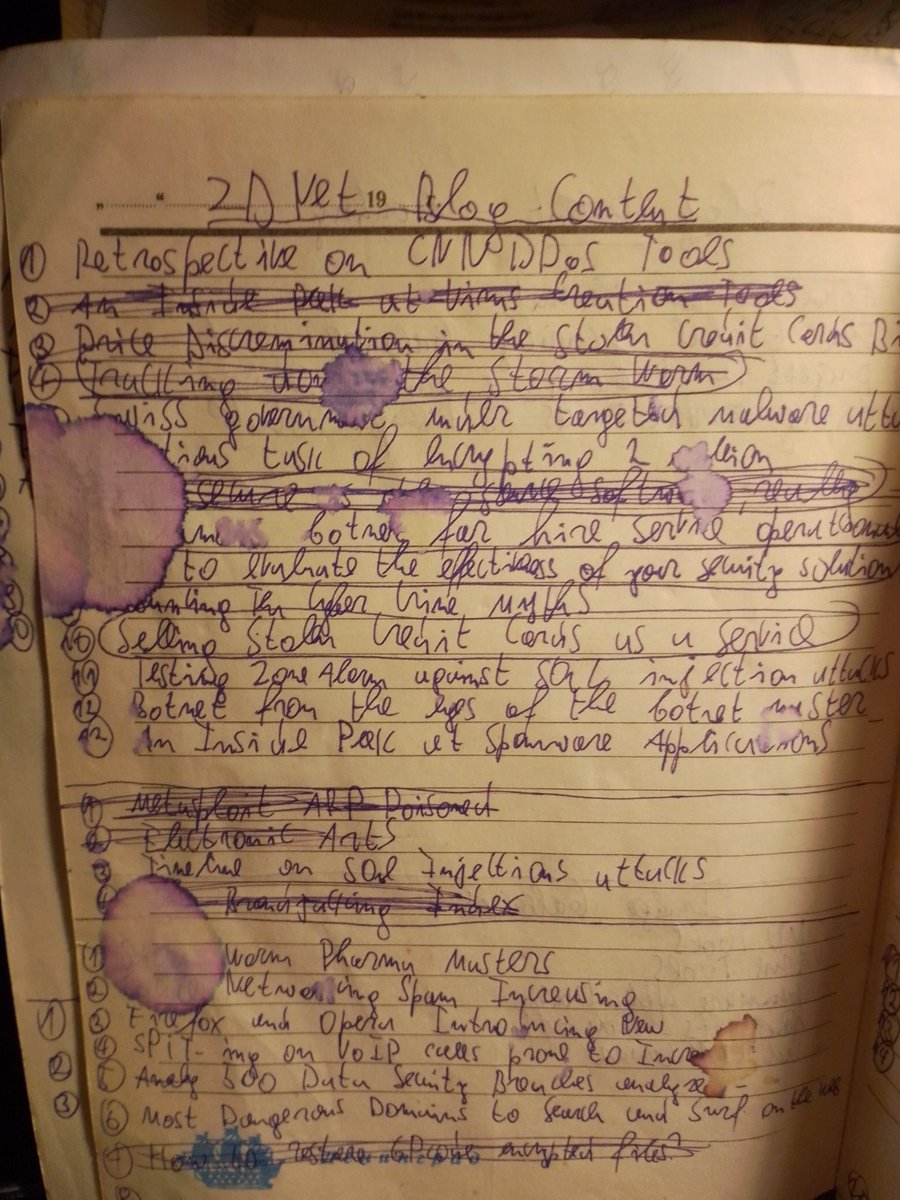 ZDNet 19 Blog Content
① Retrospective on CNN DDoS Tools
② An Inside Peek at Virus Creation Tools
③ Price Discremination in the Stolen Credit Cards
④ Tracking down the Storm Worm
government under targeted malware
task of encrypting 2
secure
botnet for hire service
to evaluate the effectivness of your security solution
The Cyber Crime myths
⑩ Selling Stolen Credit Cards as a Service
⑪ Testing Zone Alarm against SQL injection attacks
⑫ Botnet from the eyes of the botnet master
An Inside Peek at Spamware Applications
① Metasploit ARP Poisoned
② Electronic Arts
③ Timeline on SQL Injections attacks
Brandjacking Index
① Worm Pharma Masters
② Spam Increasing
① ③ Firefox and Opera New
④ SPIT-ing on VoIP calls prone to
② ⑤ 500 Data Security Breaches
③
⑥ Most Dangerous Domains to Search and Surf on the Web
⑦ How to restore GPcode encrypted files?